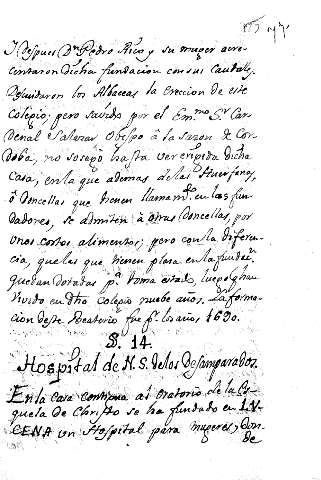 Y despues Dn. Pedro Rico, y su muger acre-
centaron dicha fundacion con sus Caudales.
Descuidaron los Albaceas la ereccion de este
Colegio; pero savido por el Em.mo Sr. Car-
denal Salazar Obispo â la sazon de Cor-
doba, no sosegò hasta ver erigida dicha
Casa, en la que ademas de las Huerfanas,
ô Doncellas que tienen llamam.to en las fun-
dadores, se admiten â otras Doncellas, por
unos cortos alimentos; pero con la diferen-
cia, que las que tienen plaza en la fundn.
quedan dotadas pa. tomar estado, luego q. han
vivido en dho Colegio nueve años. La forma-
cion de este Beaterio fue pr. los años 1690.
§. 14.
Hospital de N. S. de los Desamparados.
En la Casa contigua al Oratorio de la Es-
quela de Christo se ha fundado en LV-
CENA un Hospital para mugeres, don-
de